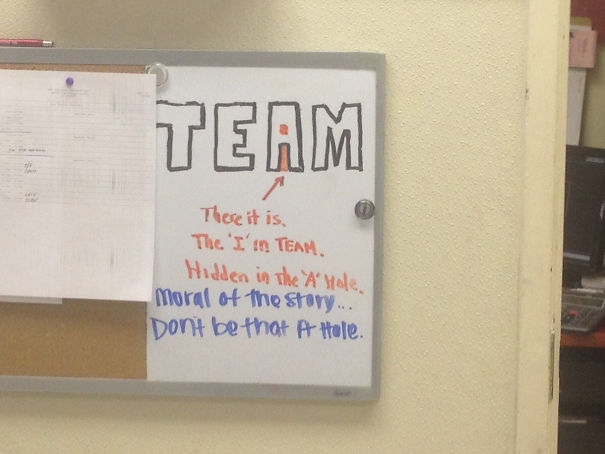 TEAM
There it is.
The 'I' in TEAM.
Hidden in the 'A' Hole.
Moral of the story...
Don't be that A Hole.